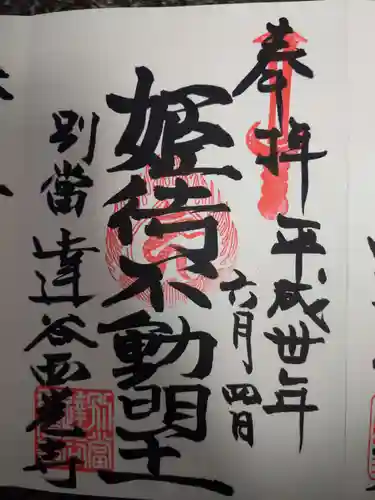 奉拝
平成卅年
六月四日
姫待不動明王
別當
達谷西光寺